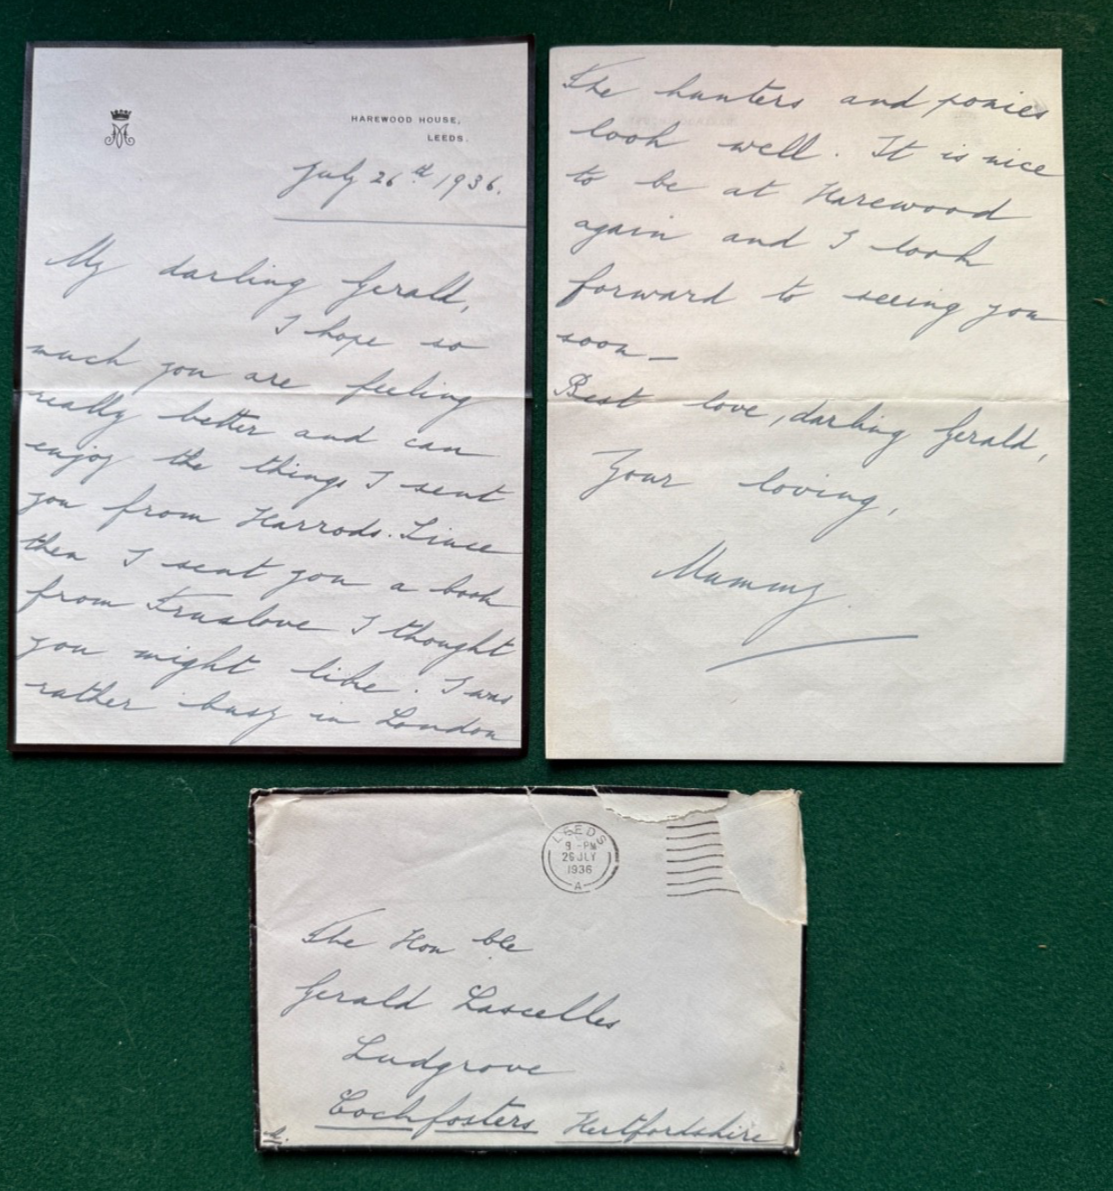 HAREWOOD HOUSE,
LEEDS.
July 26th 1936.
My darling Gerald,
I hope so
much you are feeling
really better and can
enjoy the things I sent
you from Harrods. Since
then I sent you a book
from Truslove I thought
you might like. I was
rather busy in London
The hunters and ponies
look well. It is nice
to be at Harewood
again and I look
forward to seeing you
soon —
Best love, darling Gerald,
Your loving,
Mummy.
LEEDS
9 - PM
26 JLY
1936
A
The Hon ble
Gerald Lascelles
Ludgrove
Cockfosters Hertfordshire